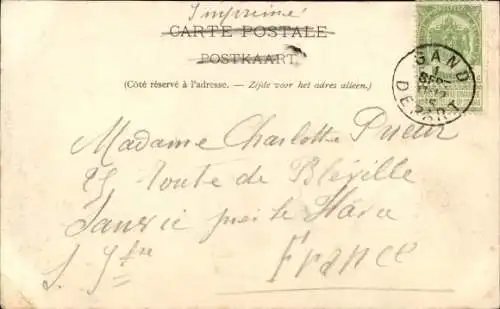 Imprimé
CARTE POSTALE
POSTKAART
(Côté réservé à l'adresse. — Zijde voor het adres alleen.)
GAND
1
SEPT
DEPART
Madame Charlotte Prieur
Route de Bléville
Sanvic près le Havre
S. Infre
France